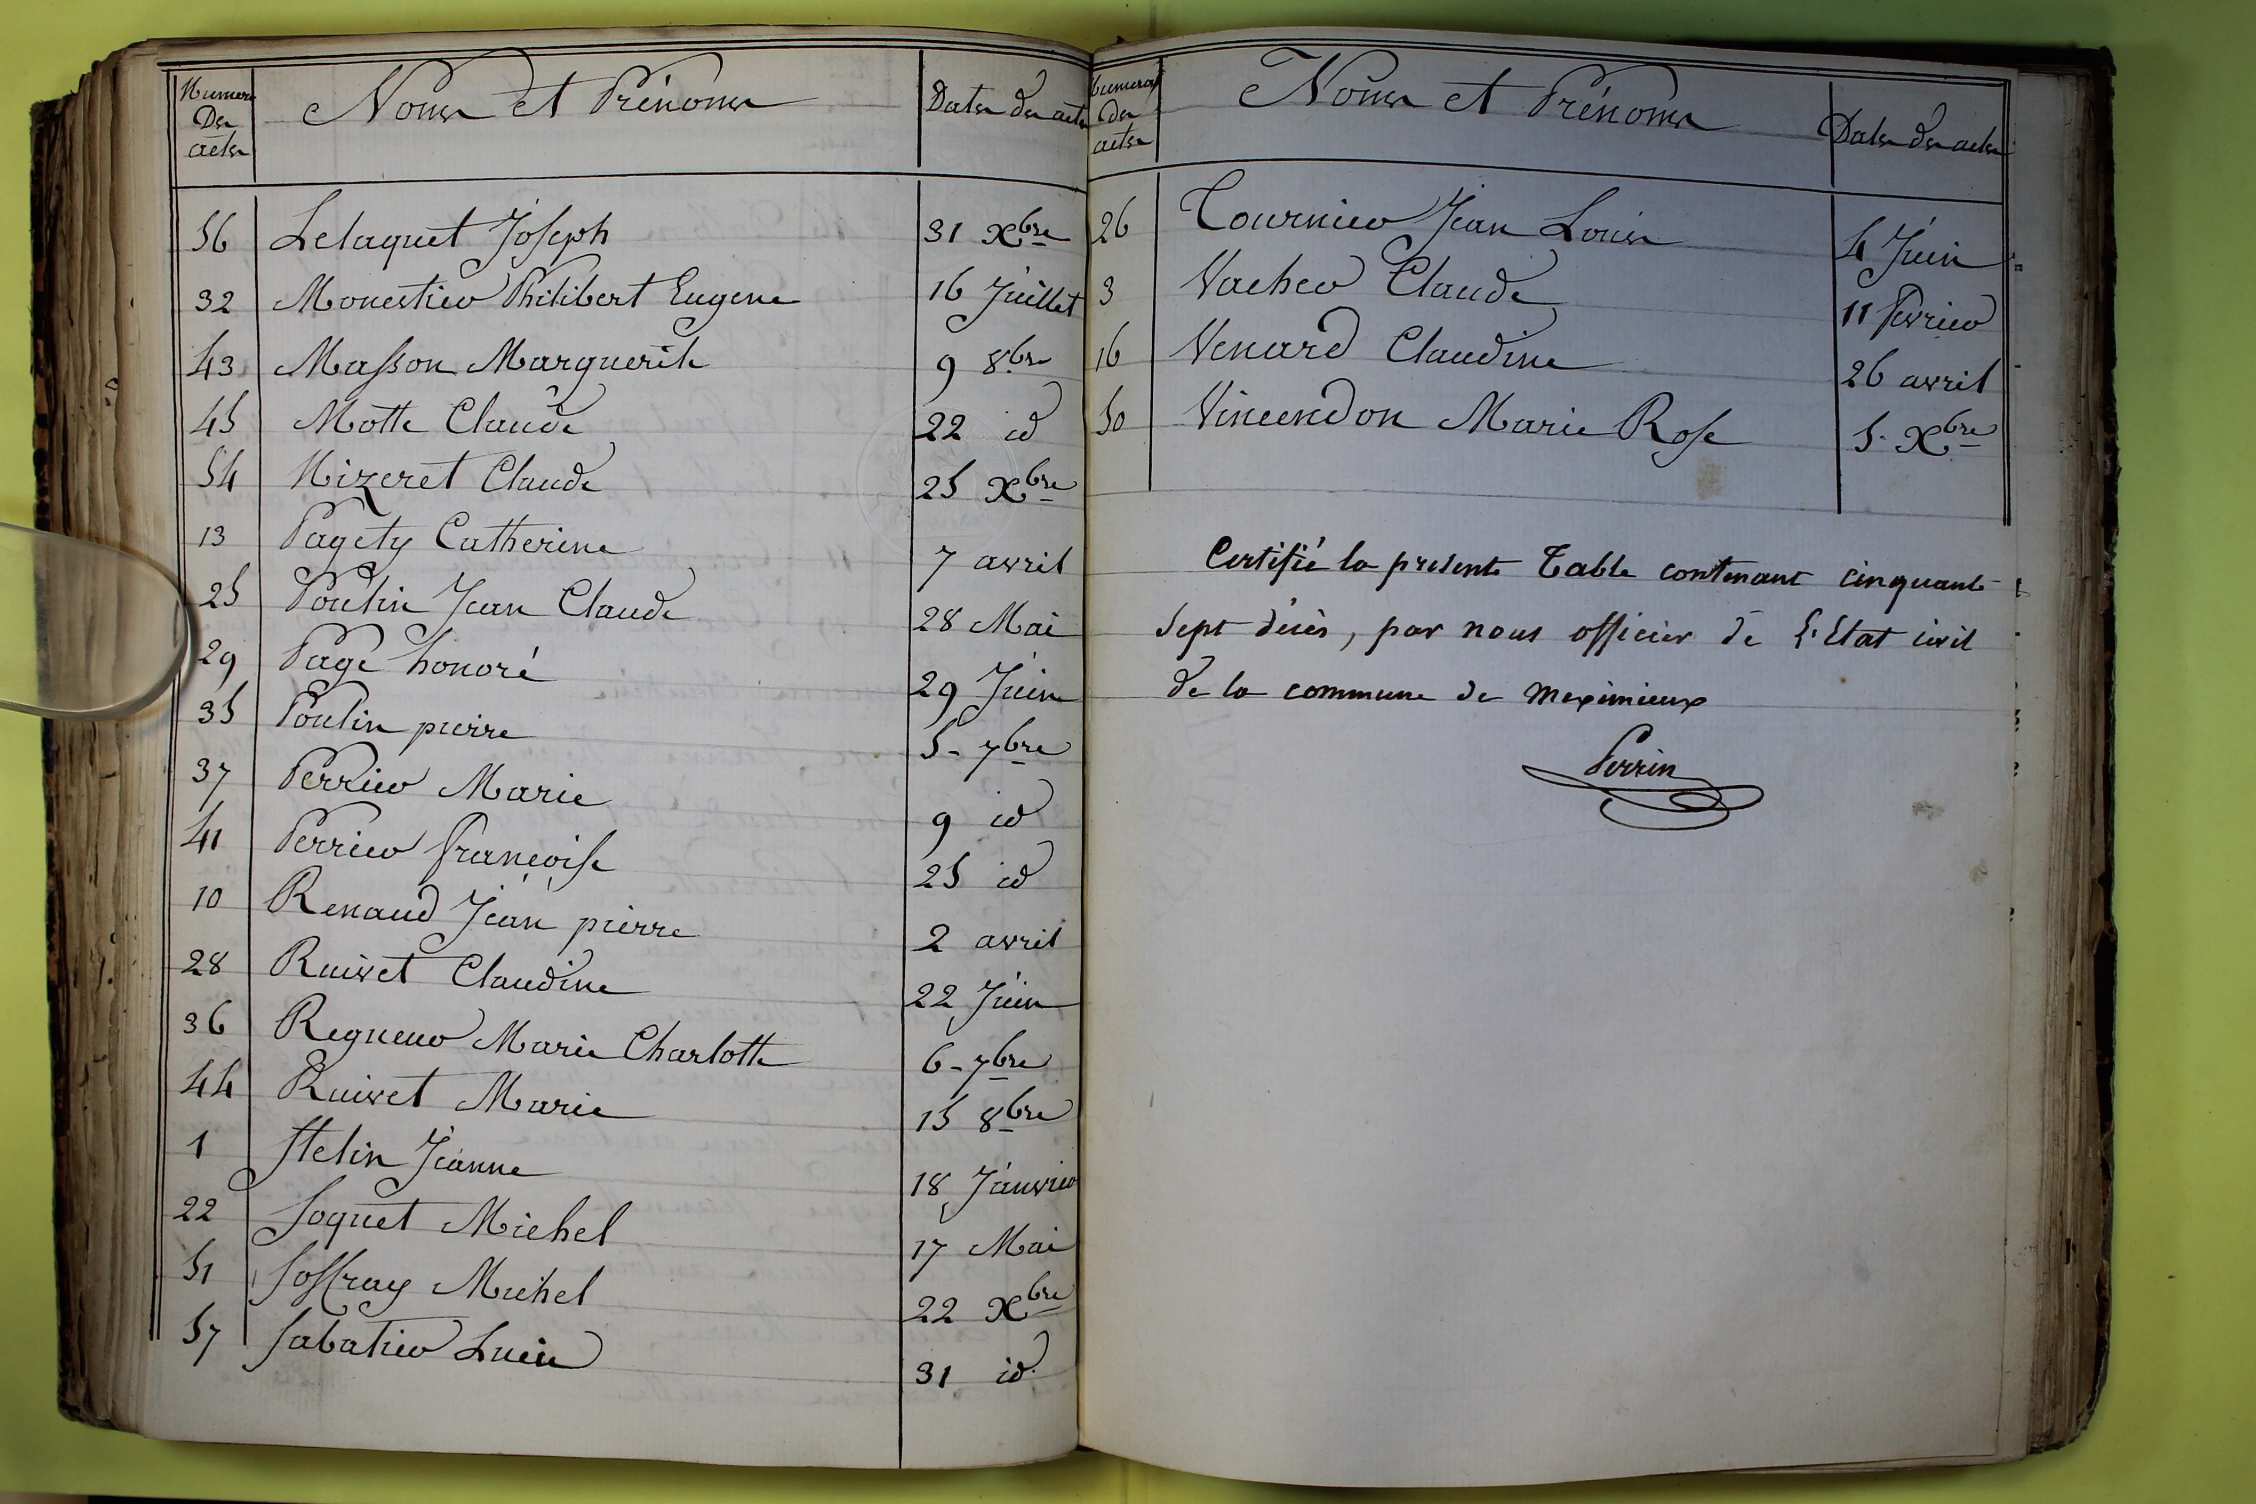 Numero Des actes Noms et Prénoms Dates des actes
56 Lelaquet Joseph 31 Xbre
32 Monestier Philibert Eugene 16 Juillet
43 Masson Marguerite 9 8bre
45 Motte Claude 22 id
54 Mizeret Claude 25 Xbre
13 Pagety Catherine 7 avril
25 Poulin Jean Claude 28 Mai
29 Page honoré 29 Juin
35 Poulin pierre 5 - 7bre
37 Perrier Marie 9 id
41 Perrier françoise 25 id
10 Renaud Jean pierre 2 avril
28 Ruivet Claudine 22 Juin
36 Regneur Marie Charlotte 6 - 7bre
44 Ruivet Marie 15 8bre
1 Stelin Jeanne 18 Janvier
22 Soquet Michel 17 Mai
51 Soffray Michel 22 Xbre
57 Sabatier Lucie 31 id
Numeros des actes Noms et Prénoms Dates des actes
26 Tournier Jean Louis 4 Juin
3 Vacher Claude 11 fevrier
16 Venard Claudine 26 avril
50 Vincendon Marie Rose 5. Xbre
Certifié la présente Table contenant cinquante
sept décès, par nous officier de l'Etat civil
de la commune de meximieux
Perrin